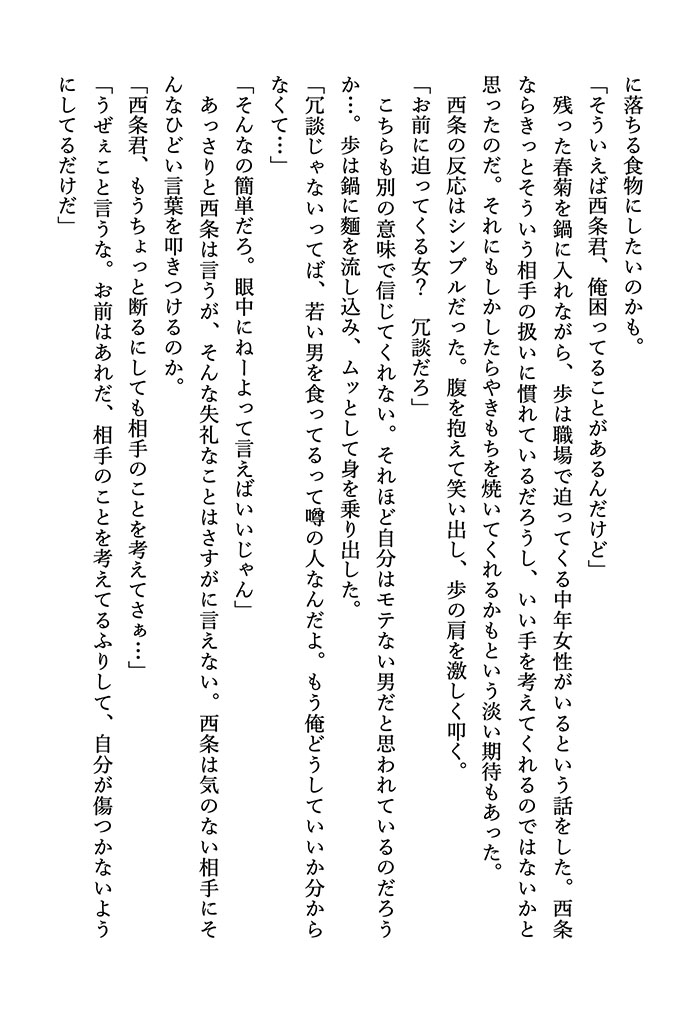 に落ちる食物にしたいのかも。
「そういえば西条君、俺困ってることがあるんだけど」
　残った春菊を鍋に入れながら、歩は職場で迫ってくる中年女性がいるという話をした。西条
ならきっとそういう相手の扱いに慣れているだろうし、いい手を考えてくれるのではないかと
思ったのだ。それにもしかしたらやきもちを焼いてくれるかもという淡い期待もあった。
　西条の反応はシンプルだった。腹を抱えて笑い出し、歩の肩を激しく叩く。
「お前に迫ってくる女？　冗談だろ」
　こちらも別の意味で信じてくれない。それほど自分はモテない男だと思われているのだろう
か…。歩は鍋に麺を流し込み、ムッとして身を乗り出した。
「冗談じゃないってば、若い男を食ってるって噂の人なんだよ。もう俺どうしていいか分から
なくて…」
「そんなの簡単だろ。眼中にねーよって言えばいいじゃん」
　あっさりと西条は言うが、そんな失礼なことはさすがに言えない。西条は気のない相手にそ
んなひどい言葉を叩きつけるのか。
「西条君、もうちょっと断るにしても相手のことを考えてさぁ…」
「うぜぇこと言うな。お前はあれだ、相手のことを考えてるふりして、自分が傷つかないよう
にしてるだけだ」